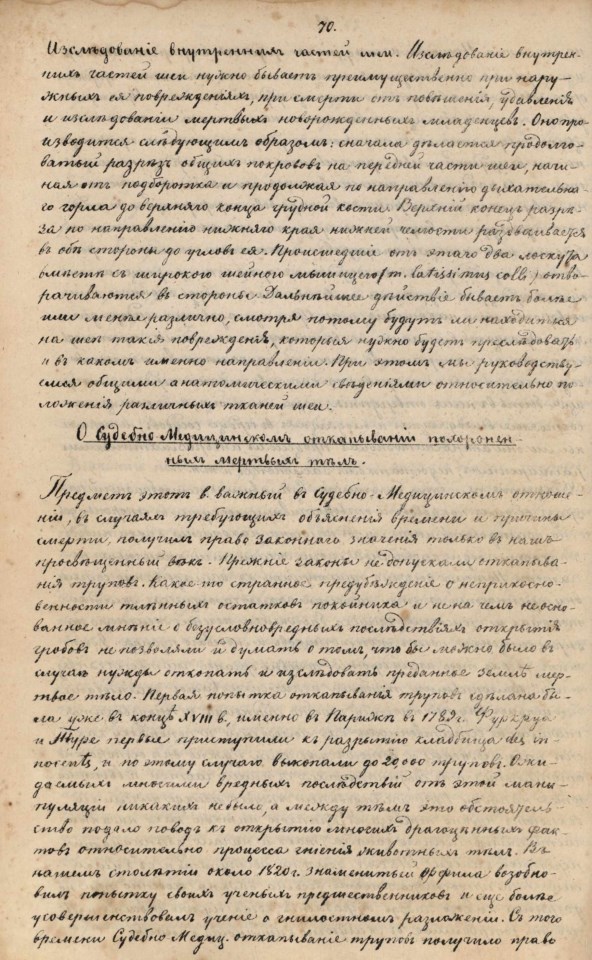 70.
Изслѣдованіе внутреннихъ частей шеи. Изслѣдованіе внутрен-
нихъ частей шеи нужно бываетъ преимущественно при нару-
жныхъ ея поврежденіяхъ, при смерти отъ повѣшенія, удавленія
и изслѣдованіи мертвыхъ новорожденныхъ младенцевъ. Оно про-
изводится слѣдующимъ образомъ: сначала дѣлается продолго-
ватый разрѣзъ общихъ покрововъ на передней части шеи, начи-
ная отъ подбородка и продолжая по направленію дыхательна-
го горла до верхняго конца грудной кости. Верхній конецъ разрѣ-
за по направленію нижняго края нижней челюсти раздваивается
въ обѣ стороны до угловъ ея. Происшедшіе отъ этаго два лоскута
вмѣстѣ съ широкого шейного мышицего (m. latissimus colli) отво-
рачиваются въ стороны. Дальнѣйшее дѣйствіе бываетъ болѣе
или менѣе различно, смотря потому будутъ ли находиться
на шеѣ такія поврежденія, которыя нужно будетъ преслѣдовать
и въ какомъ именно направленіи. При этомъ мы руководству-
емся общими анатомическими свѣденіями относительно по-
ложенія различныхъ тканей шеи.
О Судебно-Медицинскомъ откапываніи похоронен-
ныхъ мертвыхъ тѣлъ.
Предметъ этотъ в. важный въ Судебно-Медицинскомъ отноше-
ніи, въ случаяхъ требующихъ объясненія времени и причины
смерти, получилъ право законного значенія только въ нашъ
просвѣщенный вѣкъ. Прежніе законы не допускали откапыва-
нія труповъ. Какое-то странное предубѣжденіе о неприкосно-
венности тлѣнныхъ остатковъ покойника и не на чемъ неосно-
ванное мнѣніе о безусловновредныхъ послѣдствіяхъ открытія
гробовъ не позволяли и думать о томъ, что бы можно было въ
случаѣ нужды откопать и изслѣдовать преданное землѣ мер-
твое тѣло. Первая попытка откапыванія труповъ сдѣлана бы-
ла уже въ концѣ XVIII в., именно въ Парижѣ въ 178 г. Фуркруа
и Туре первые приступили къ разрытію кладбища des in-
nocents, и по этому случаю выкопали до 20,000 труповъ. Ожи-
даемыхъ многими вредныхъ послѣдствій отъ этой мани-
пуляціи никакихъ небыло, а между тѣмъ это обстоятель-
ство подало поводъ къ открытію многихъ драгоцѣнныхъ фак-
товъ относительно процесса гніенія животныхъ тѣлъ. Въ
нашемъ столѣтіи около 1820 г. знаменитый Орфила возобно-
вилъ попытку своихъ ученыхъ предшественниковъ и еще болѣе
усовершенствовалъ ученіе о гнилостномъ разложеніи. Съ того
времени Судебно Медиц. откапываніе труповъ получило право